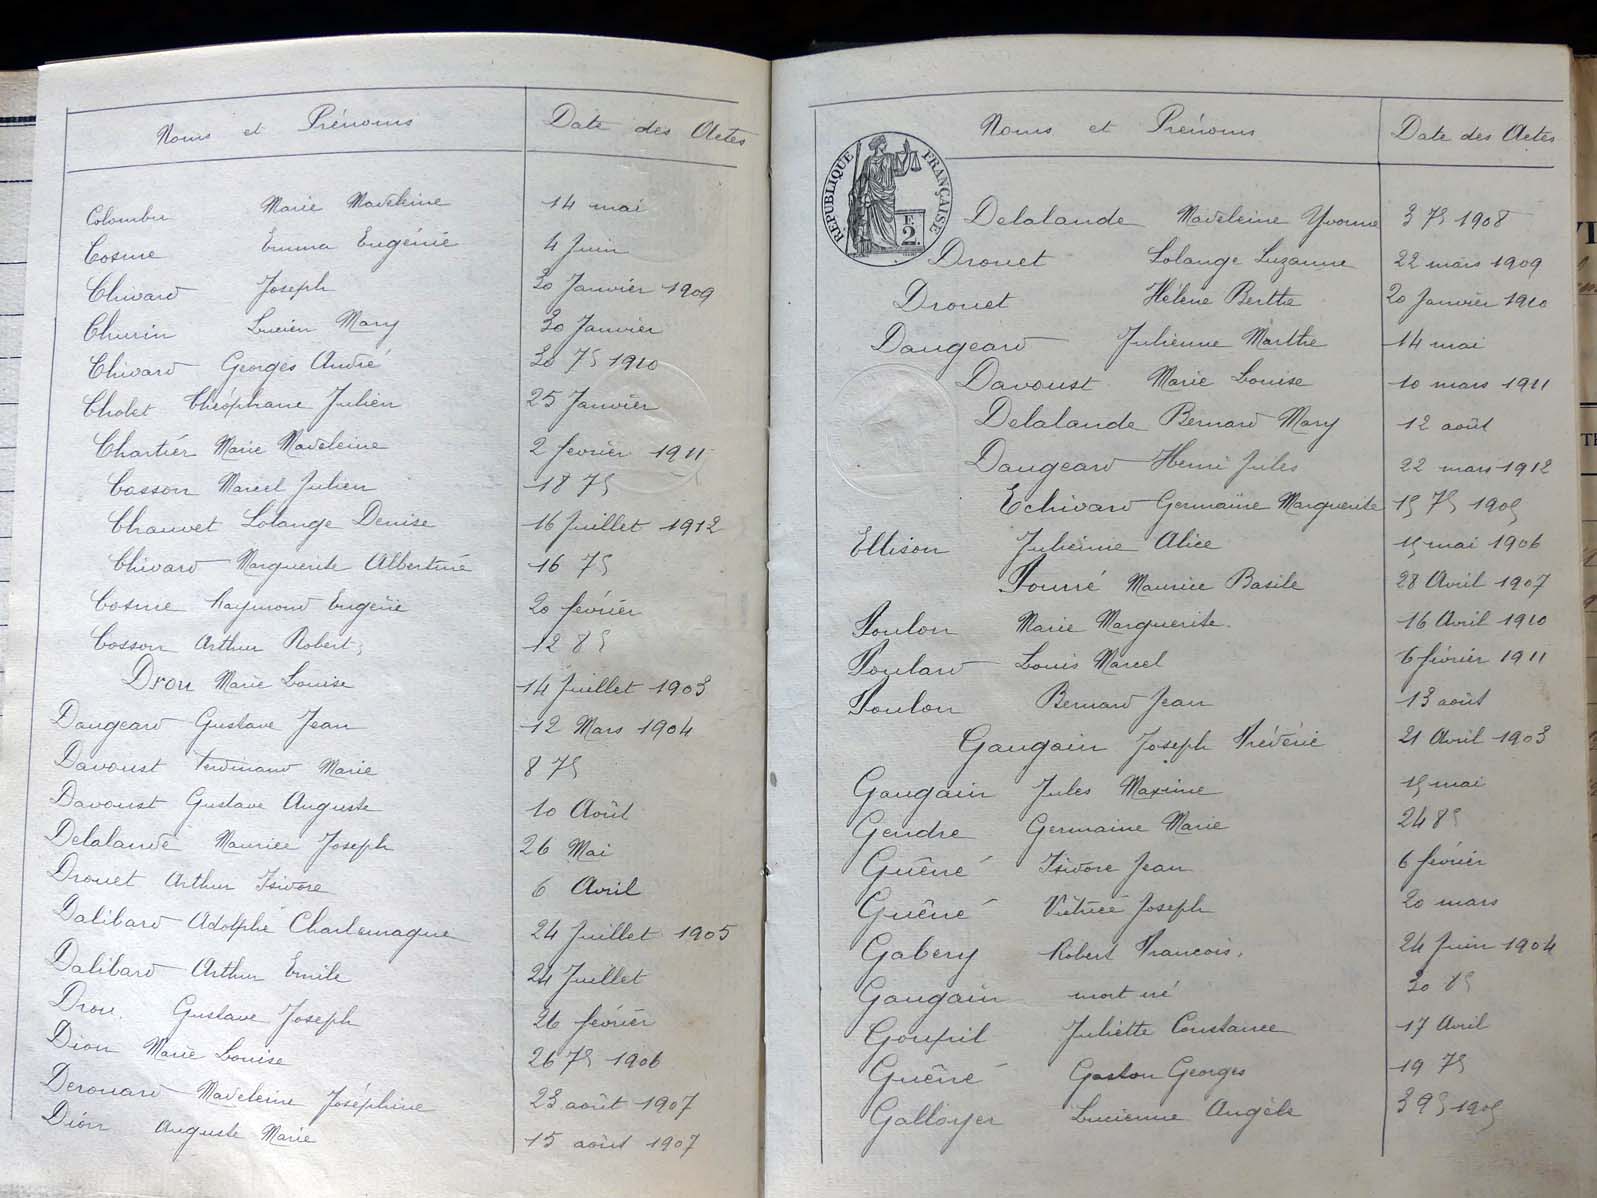 Noms et Prénoms Date des Actes
Marie Madeleine 14 mai
Cosme Emma Eugénie 4 Juin
Chivard Joseph 30 Janvier 1909
Churin Lucien Mary 30 Janvier
Chivard Georges André 30 7bre 1910
Cholet Théophane Julien 25 Janvier
Chartier Marie Madeleine 2 fevrier 1911
Cosson Marcel Julien 18 7bre
Chauvet Solange Denise 16 Juillet 1912
Chivard Marguerite Albertine 16 7bre
Cosme Raymond Eugène 20 février
Cosson Arthur Robert 12 8bre
Drou Marie Louise 14 Juillet 1903
Daugeard Gustave Jean 12 Mars 1904
Davoust Ferdinand Marie 8 7bre
Davoust Gustave Auguste 10 Août
Delalande Maurice Joseph 26 Mai
Drouet Arthur Isidore 6 Avril
Dalibard Adolphe Charlemagne 24 Juillet 1905
Dalibard Arthur Emile 24 Juillet
Drou. Gustave Joseph 26 février
Dion Marie Louise 26 7bre 1906
Derouard Madeleine Joséphine 23 août 1907
Dion Auguste Marie 15 août 1907
Noms et Prénoms Date des Actes
RÉPUBLIQUE FRANÇAISE
F.
2.
Delalande Madeleine Yvonne 3 7bre 1908
Drouet Solange Suzanne 22 mars 1909
Drouet Hélène Berthe 20 Janvier 1910
Daugeard Julienne Marthe 14 mai
Davoust Marie Louise 10 mars 1911
Delalande Bernard Mary 12 août
Daugeard Henri Jules 22 mars 1912
Echivard Germaine Marguerite 15 7bre 1905
Ellison Julienne Alice 15 mai 1906
Fourré Maurice Basile 28 Avril 1907
Foulon Marie Marguerite. 16 Avril 1910
Foulard Louis Marcel 6 février 1911
Foulon Bernard Jean 13 août
Gaugain Joseph Fréderic 21 Avril 1903
Gaugain Jules Maxime 15 mai
Gendre Germaine Marie 24 8bre
Guéné Isidore Jean 6 février
Guéné Joseph 20 mars
Gabery Robert Francois. 24 Juin 1904
Gaugain mort né 30
Goupil Juliette Constance 17 Avril
Guéné Gaston Georges 19 7bre
Galloyer Lucienne Angèle 3 9bre 1905